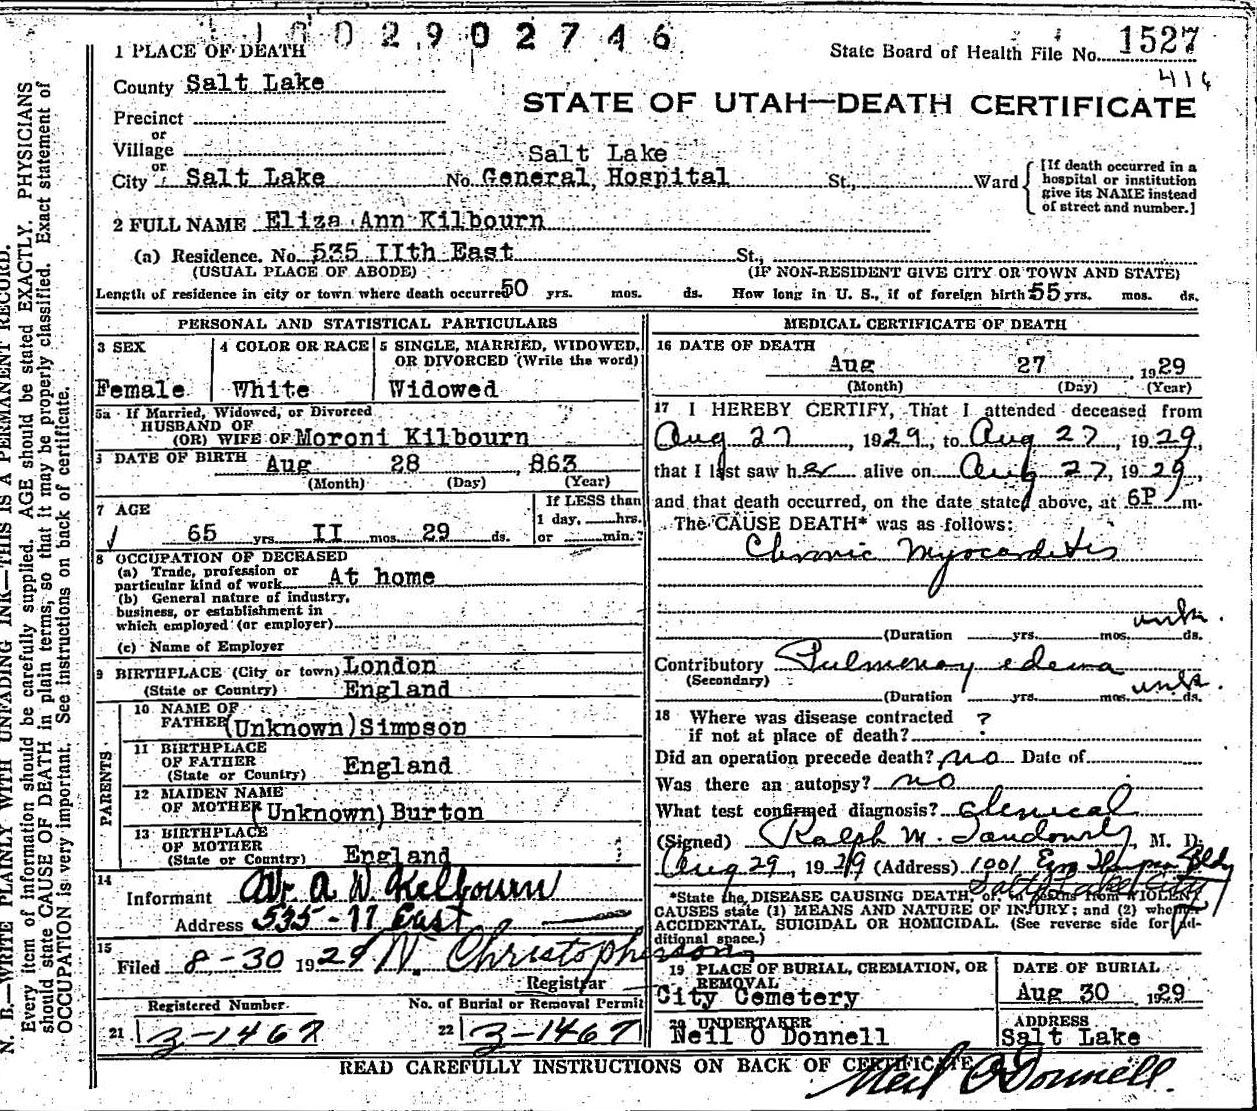 1 0 0 2 9 0 2 7 4 6
1 PLACE OF DEATH
State Board of Health File No. 1527
416
County Salt Lake
STATE OF UTAH—DEATH CERTIFICATE
Precinct
or
Village
Salt Lake
or
City Salt Lake No. General Hospital St., Ward
[If death occurred in a hospital or institution give its NAME instead of street and number.]
2 FULL NAME Eliza Ann Kilbourn
(a) Residence. No. 535 IIth East St.,
(USUAL PLACE OF ABODE) (IF NON-RESIDENT GIVE CITY OR TOWN AND STATE)
Length of residence in city or town where death occurred 50 yrs. mos. ds. How long in U. S., if of foreign birth 55 yrs. mos. ds.
PERSONAL AND STATISTICAL PARTICULARS
3 SEX
Female
4 COLOR OR RACE
White
5 SINGLE, MARRIED, WIDOWED,
OR DIVORCED (Write the word)
Widowed
5a If Married, Widowed, or Divorced
HUSBAND OF
(OR) WIFE OF Moroni Kilbourn
DATE OF BIRTH Aug 28 , 863
(Month) (Day) (Year)
7 AGE
65 yrs. II mos. 29 ds.
If LESS than
1 day, hrs.
or min.?
8 OCCUPATION OF DECEASED
(a) Trade, profession or
particular kind of work At home
(b) General nature of industry,
business, or establishment in
which employed (or employer)
(c) Name of Employer
9 BIRTHPLACE (City or town) London
(State or Country) England
PARENTS
10 NAME OF
FATHER (Unknown) Simpson
11 BIRTHPLACE
OF FATHER
(State or Country) England
12 MAIDEN NAME
OF MOTHER (Unknown) Burton
13 BIRTHPLACE
OF MOTHER
(State or Country) England
14
Informant A W Kilbourn
Address 535-11 East
15
Filed 8-30 1929 N. Christopherson
Registrar
Registered Number. No. of Burial or Removal Permit
21 3-1467 22 3-1467
MEDICAL CERTIFICATE OF DEATH
16 DATE OF DEATH
Aug 27 , 1929
(Month) (Day) (Year)
17 I HEREBY CERTIFY, That I attended deceased from
Aug 27, 1929, to Aug 27, 1929,
that I last saw her alive on Aug 27, 1929,
and that death occurred, on the date stated above, at 6P m.
The CAUSE DEATH* was as follows:
Chronic Myocarditis
unk.
(Duration yrs. mos. ds.
Contributory Pulmonary edema
(Secondary)
unk.
(Duration yrs. mos. ds.
18 Where was disease contracted
if not at place of death? ?
Did an operation precede death? no Date of
Was there an autopsy? no
What test confirmed diagnosis? clinical
(Signed) Ralph M. M. D.
Aug 29, 1929 (Address) 1001 Bldg
Salt Lake City
*State the DISEASE CAUSING DEATH, or, in deaths from VIOLENT
CAUSES state (1) MEANS AND NATURE OF INJURY; and (2) whether
ACCIDENTAL, SUICIDAL OR HOMICIDAL. (See reverse side for additional space.)
19 PLACE OF BURIAL, CREMATION, OR
REMOVAL
City Cemetery
DATE OF BURIAL
Aug 30 1929
20 UNDERTAKER
Neil O Donnell
ADDRESS
Salt Lake
READ CAREFULLY INSTRUCTIONS ON BACK OF CERTIFICATE
Neil O'Donnell.
N. B.—WRITE PLAINLY WITH UNFADING INK—THIS IS A PERMANENT RECORD.
Every item of information should be carefully supplied. AGE should be stated EXACTLY. PHYSICIANS
should state CAUSE OF DEATH in plain terms, so that it may be properly classified. Exact statement of
OCCUPATION is very important. See instructions on back of certificate.